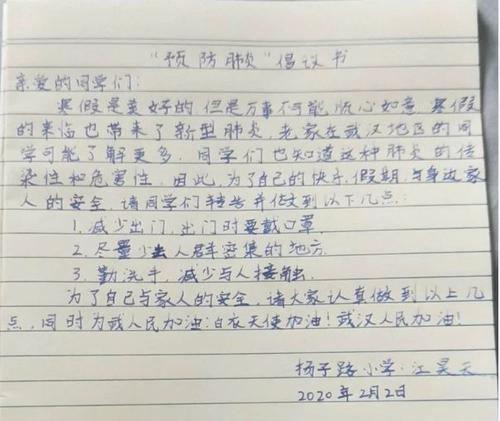 “预防肺炎”倡议书
亲爱的同学们：
寒假是美好的,但是万事不可能恍心如意,寒假
的来临也带来了新型肺炎,老家在武汉地区的同
学可能了解更多,同学们也知道这种肺炎的传
染性和危害性,因此,为了自己的快乐假期,与身边家
人的安全,请同学们转告并做到以下几点：
1.减少出门,出门时要戴口罩.
2.尽量少去人群密集的地方.
3.勤洗手,减少与人接触.
为了自己与家人的安全,请大家认真做到以上几
点,同时为我人民加油:白衣天使加油！武汉人民加油！
扬子路小学:江昊天
2020年2月2日